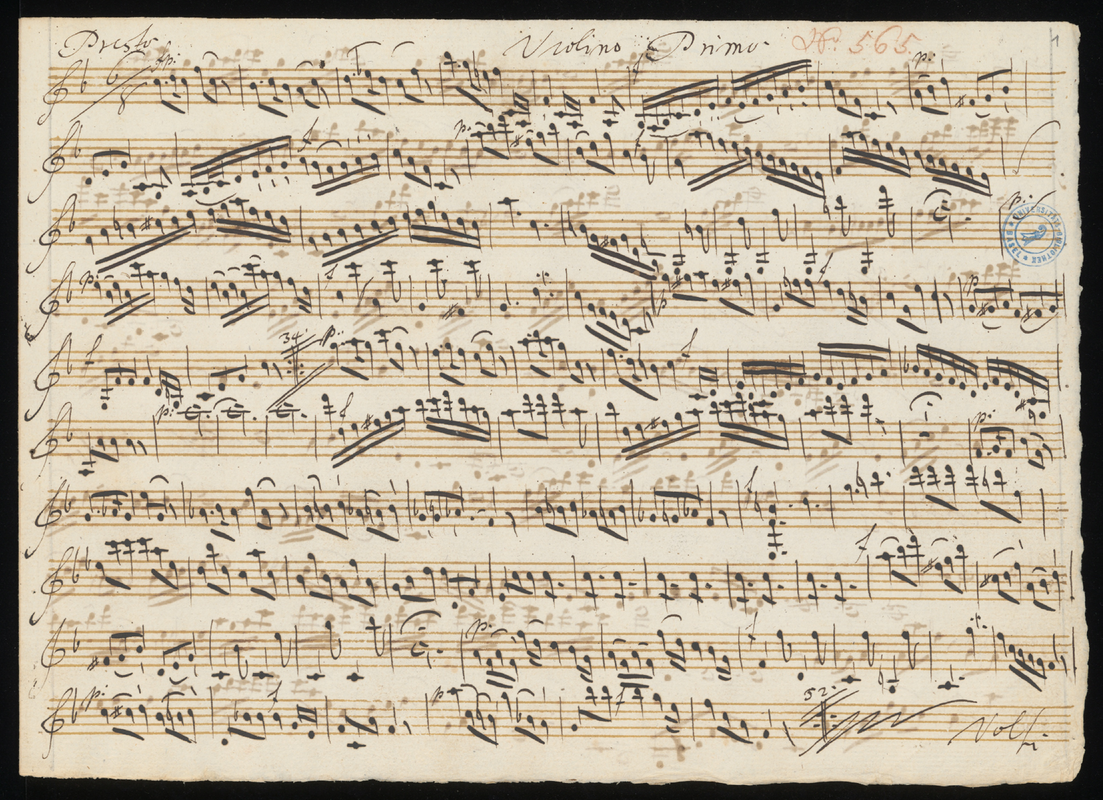 Presto Violino Primo. No. 565. 1
6
8
p.
f
p.
f
p.
p.
p.
f
f
p
p.
f
34. p.
f
p.
f
p.
f
f
p.
f
p.
f
p.
f
52.
Volti